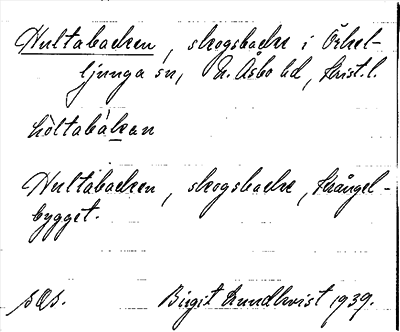 Hultabacken, skogsbacke i Örkel-
ljunga sn, N. Åsbo hd, Krist. l.
hòltabákan
Hultabacken, skogsbacke, Skångel-
bygget.
Birgit Lundkvist 1939.